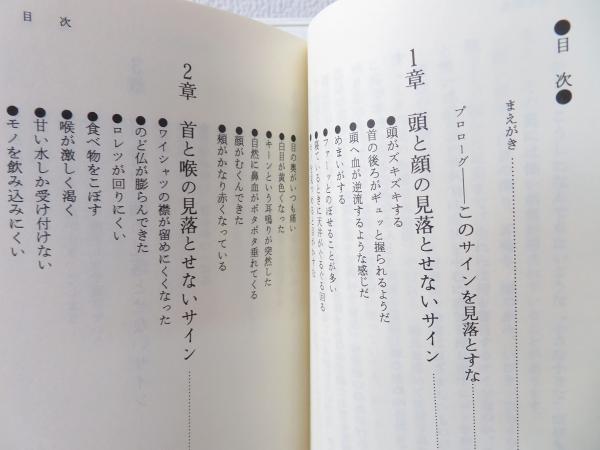 ●目 次●
まえがき
プロローグ――このサインを見落とすな
1章 頭と顔の見落とせないサイン
●頭がズキズキする
●首の後ろがギュッと握られるようだ
●頭へ血が逆流するような感じだ
●めまいがする
●ファーッとのぼせることが多い
●寝ているときに天井がぐるぐる回る
●目の奥がいつも痛い
●白目が黄色くなった
●キーンという耳鳴りが突然した
●自然に鼻血がボタボタ垂れてくる
●顔がむくんできた
●頬がかなり赤くなっている
目 次
2章 首と喉の見落とせないサイン
●ワイシャツの襟が留めにくくなった
●のど仏が膨らんできた
●ロレツが回りにくい
●食べ物をこぼす
●喉が激しく渇く
●甘い水しか受け付けない
●モノを飲み込みにくい